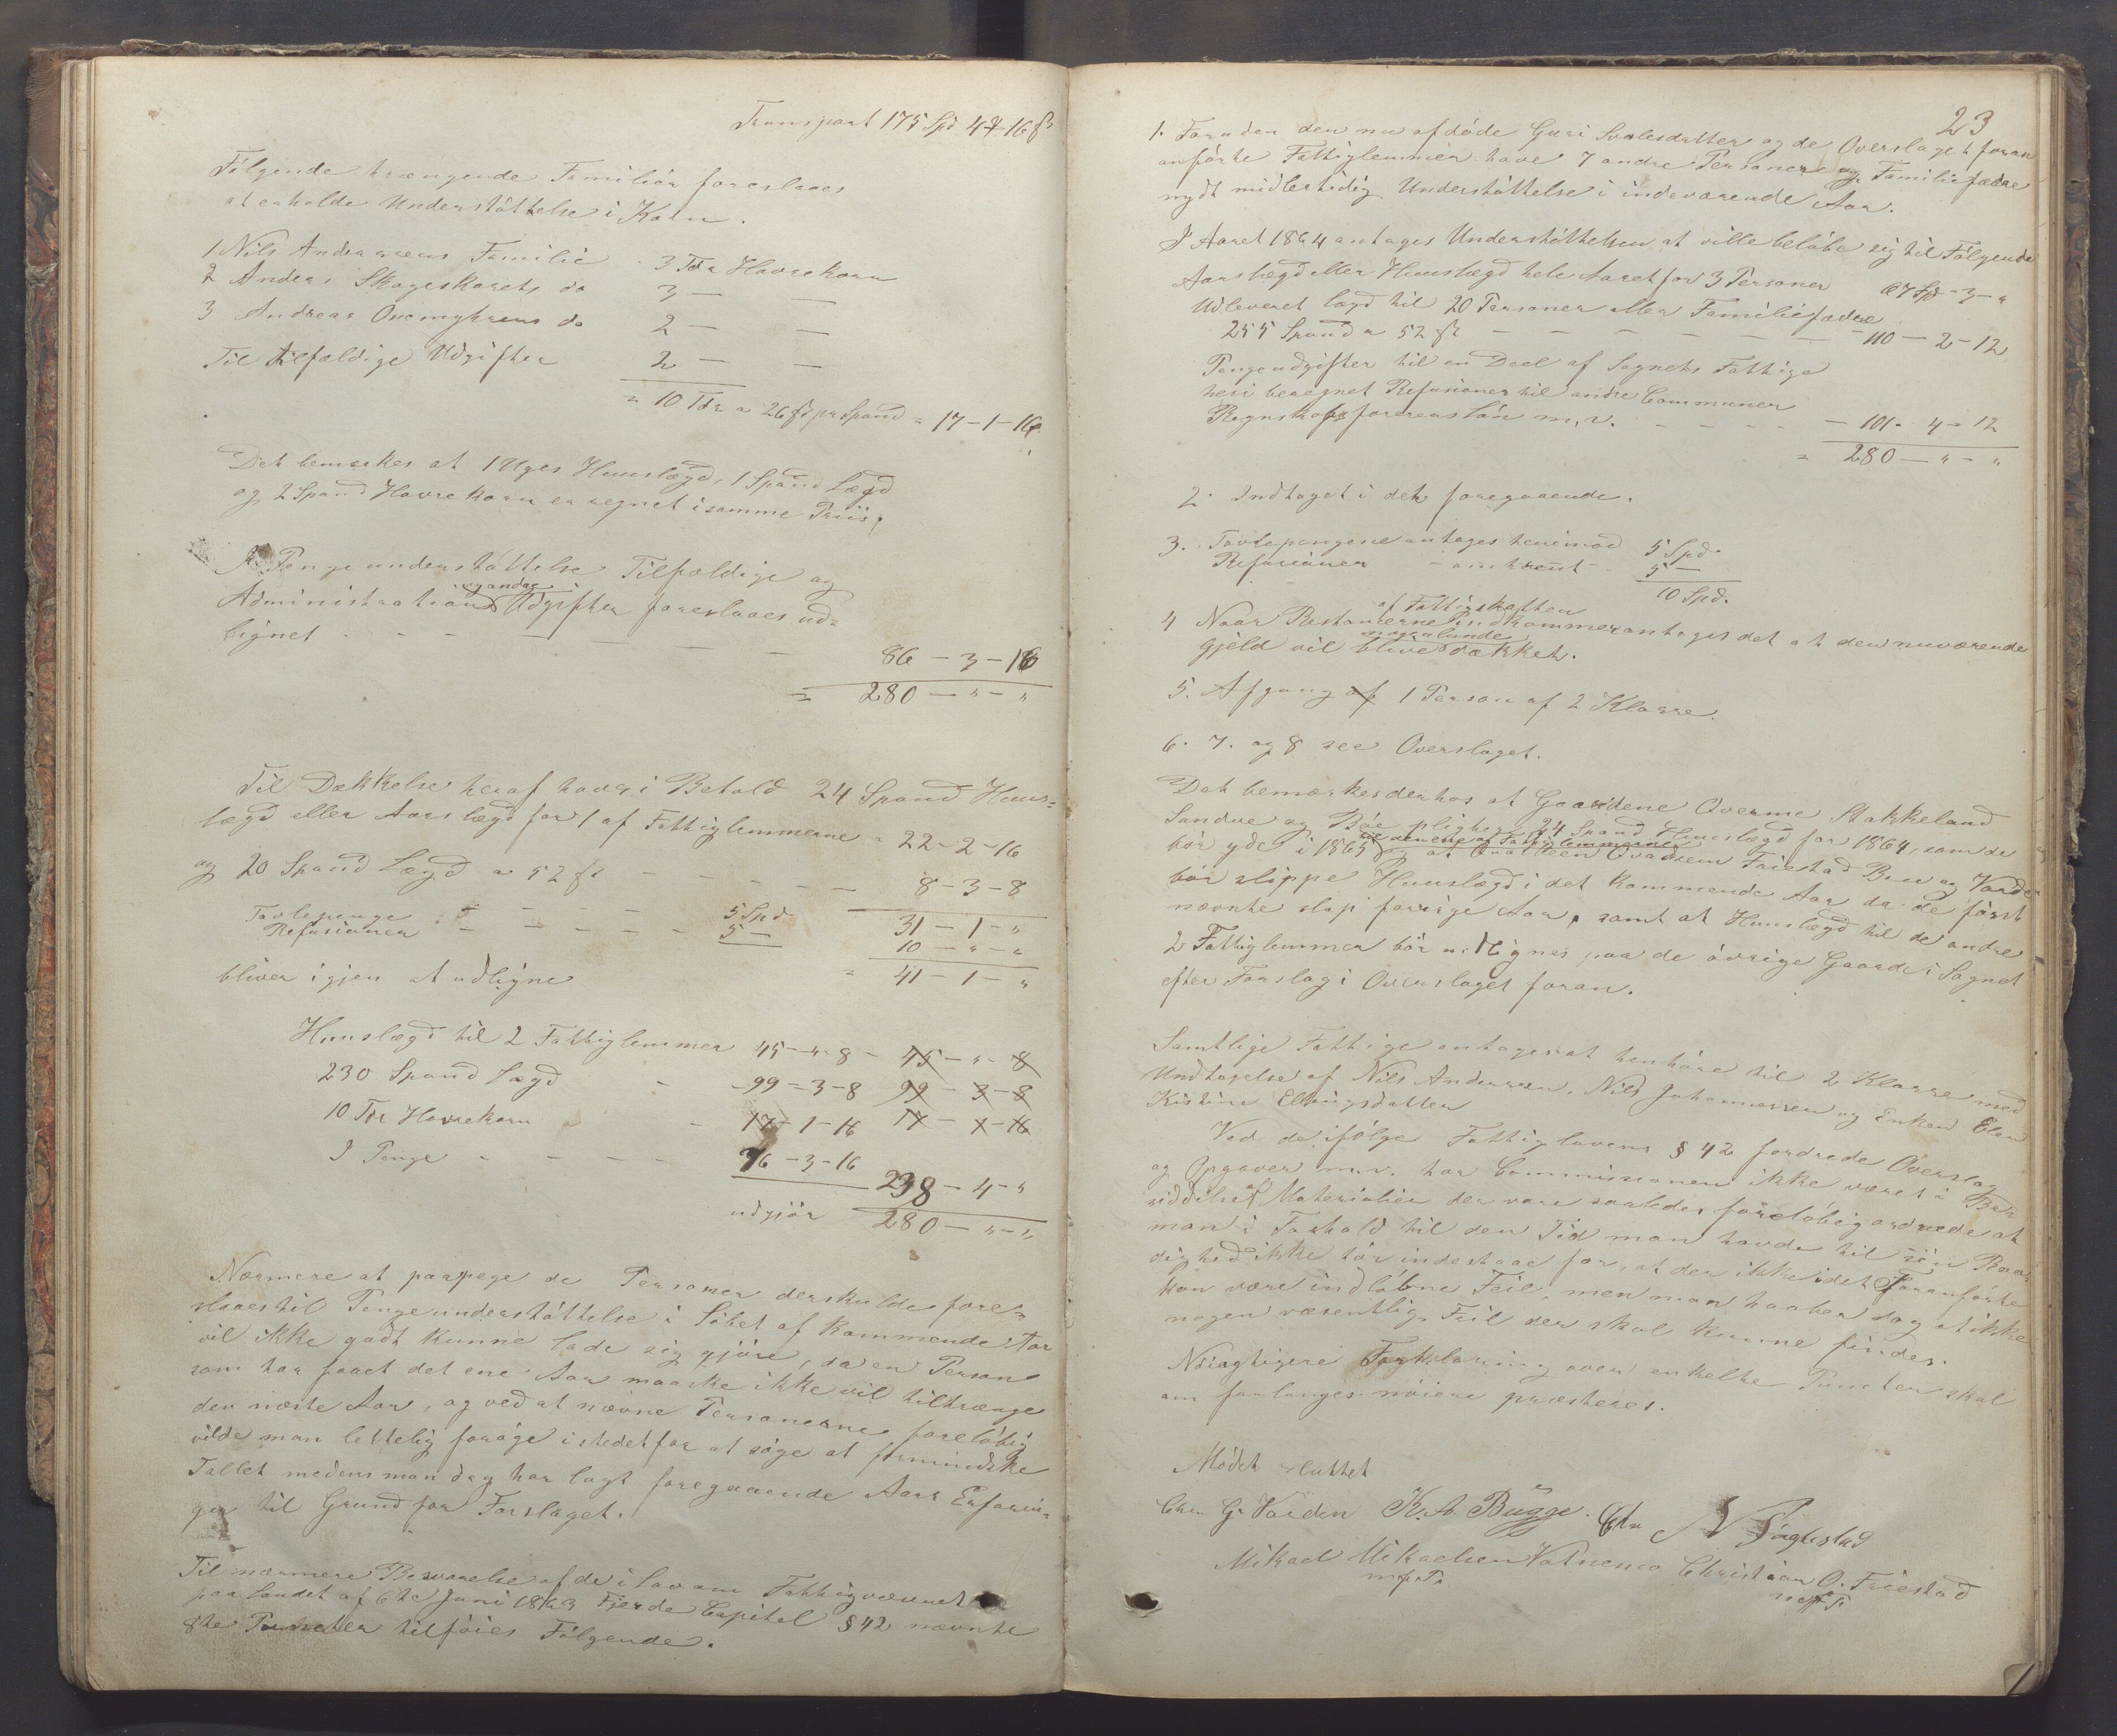 Transport 175 Spd 4 # 16 ß
Følgende trængende Familier foreslaaes
at erholde Understøttelse i Korn.
1 Nils Andersens Familie - 3 Tdr Havrekorn
2 Anders Skageskarets do 3 — —
3 Andreas Onemyhrens do 2 — —
Til tilfældige Udgifter 2 — —
= 10 Tdr a 26 ß pr Spand = 17-1-16
Det bemærkes at 1 Uges Huuslægd, 1 Spand Lægd
og 2 Spand Havrekorn er regnet i samme Priis.
I Pengeunderstøttelse Tilfældige og
Administrations og andre Udgifter foreslaaes ud-
lignet - - - — — — —
86 - 3 - 16
= 280 — " — "
Til Dækkelse heraf haves i Behold 24 Spand Huus-
lægd eller Aarslægd for 1 af Fattiglemmerne = 22-2-16
og 20 Spand Lægd a 52 ß - - - - - — 8-3-8
31 - 1 - "
Tavlepenge - - - - 5 Spd
Refusioner - - - - - 5 — 10 - " - "
bliver igjen at udligne = 41 - 1 - "
Huuslægd til 2 Fattiglemmer 45-"-8 - 45 - " - 8
230 Spand Lægd - - 99-3-8 99 - 3 - 8
10 Tdr Havrekorn - - 17-1-16 17 - 1 - 16
I Penge - - - - 76-3-16
238 - 4 - "
udgjør 280 — " - "
Nærmere at paapege de Personer der skulde fore-
slaaes til Pengeunderstøttelse i Løbet af kommende Aar
vil ikke godt kunne lade sig gjøre, da en Person
som har faaet det ene Aar maaske ikke vil tiltrænge
den næste Aar, og ved at nævne Personerne foreløbig
vilde man lettelig forøge i stedet for at søge at formindske
Tallet medens man dog har lagt foregaaende Aars Erfarin-
ger til Grund for Forslaget.
Til nærmere Besvarelse af de i Lov om Fattigvæsenet
paa Landet af 6te Juni 1863 Fjerde Capitel § 42 nævnte
8te Puncter tilføies Følgende.
23
1. Foruden den nu afdøde Guri Svalesdatter og de Overslaget foran
anførte Fattiglemmer have 7 andre Personer og Familiefædre
nydt midlertidig Understøttelse i indeværende Aar.
I Aaret 1864 antages Understøttelsen at ville beløbe sig til Følgende
Aarslægd eller Huuslægd hele Aaret for 3 Personer 67 Spd - 3 - "
Udleveret lægd til 20 Personer eller Familiefædre
255 Spand a 52 ß — — — — — — 110 - 2 - 12
Pengeudgifter til en Deel af Sognets Fattige
heri beregnet Refusioner til andre Communer
Regnskabsførerens løn m.v. - - - - — 101 - 4 - 12
= 280 — " - "
2. Indtaget i det foregaaende.
3. Tavlepengene antages henimod 5 Spd.
Refusioner - omtrent - 5 —
10 Spd.
4 Naar Restancerne af Fattigskatten indkommer antages det at den nuværende
Gjeld vil blive nogenlunde dækket.
5. Afgang af 1 Person af 2 Klasse.
6. 7. og 8 see Overslaget.
Det bemærkes derhos at Gaardene Øverme Stakkeland
Sandve og Bøe pligter 24 Spand Huuslægd for 1864, som de
bør yde i 1865 til enhver af Fattiglemmerne og at Qvalteen Qvadsem Friestad Bru og Varden
bør slippe Huuslægd i det kommende Aar da de først
nævnte slap forrige Aar, samt at Huuslægd til de andre
2 Fattiglemmer bør udlignes paa de øvrige Gaarde i Sognet
efter Forslag i Overslaget foran.
Samtlige Fattige antages at henhøre til 2 Klasse med
Undtagelse af Nils Andersen, Nils Johannesen og Enken Elen
Kistine Ellingsdatter
Ved de ifølge Fattiglovens § 42 fordrede Overslag
og Opgaver m.v. har Commissionen ikke været i Be-
siddelse af Materialier der vare saaledes foreløbig ordnede at
man i Forhold til den Tid man havde til sin Raa-
dighed ikke tør indestaae for, at der ikke i det Foranførte
kan være indløbne Feil, men man haaber dog at ikke
nogen væsentlig Feil der skal kunne findes.
Nøiagtigere Forklaring over enkelte Puncter skal
om forlanges nøiere præsteres.
Mødet sluttet
Chr. G. Varden K. A. Bugge. N Tinglestad
Mikael Mikaelsen Vatnemo Christian O. Friestad
m f P m f P